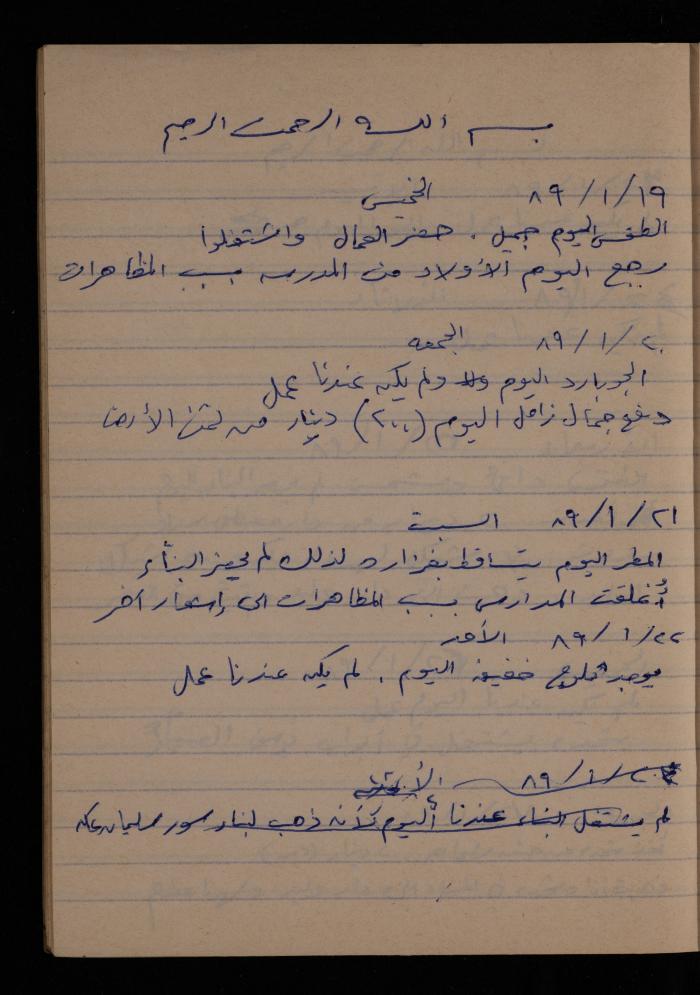 بسم الله الرحمن الرحيم
٨٩/١/١٩ الخميس
الطقس اليوم جميل . حضر العمال واشتغلوا
رجع اليوم الأولاد من المدرسه بسبب المظاهرات
٨٩/١/٢٠ الجمعه
الجو بارد اليوم ولم يكن عندنا عمل
دفع جمال نزال اليوم (٢٠٠) دينار من ثمن الأرض
٨٩/١/٢١ السبت
المطر اليوم يتساقط بغزاره لذلك لم يحضر البنّاء
أُغلقت المدارس بسبب المظاهرات الى إشعار آخر
٨٩/١/٢٢ الأحد
يوجد ثلوج خفيفه اليوم . لم يكن عندنا عمل
٨٩/١/٢ الأثنين
لم يشتغل البناء عندنا اليوم لأنه ذهب لبناء سور سليمان